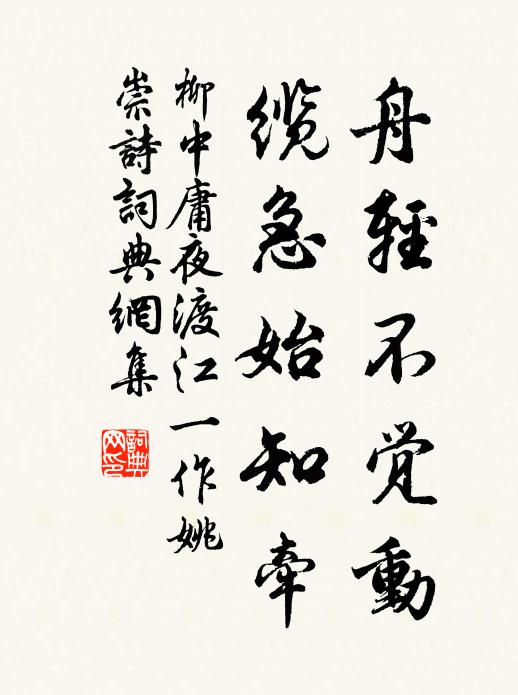 舟輕不觉動
缆急始知牽
柳中庸夜渡江一作姚
崇詩詞典網集
詞典网印